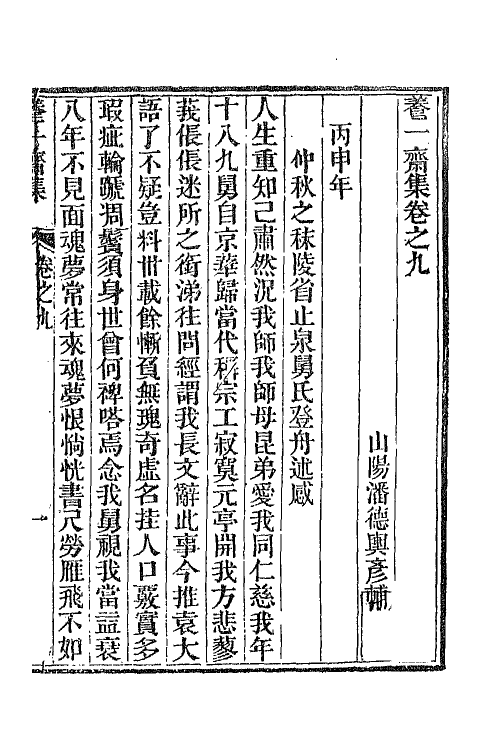 養一齋集卷之九
山陽潘德輿彥輔
丙申年
仲秋之秣陵省止泉舅氏登舟述感
人生重知己肅然況我師我師母昆弟愛我同仁慈我年
十八九舅自京華歸當代稱宗工寂寞元亭開我方悲蓼
莪倀倀迷所之銜涕往問經謂我長文辭此事今推袁大
語了不疑豈料卅載餘慚負無瑰奇虛名挂人口覈實多
瑕疵輪蹏凋鬢須身世曾何裨嗒焉念我舅視我當益衰
八年不見面魂夢常往來魂夢恨惝恍書尺勞雁飛不如
養一齋集
卷之九
一